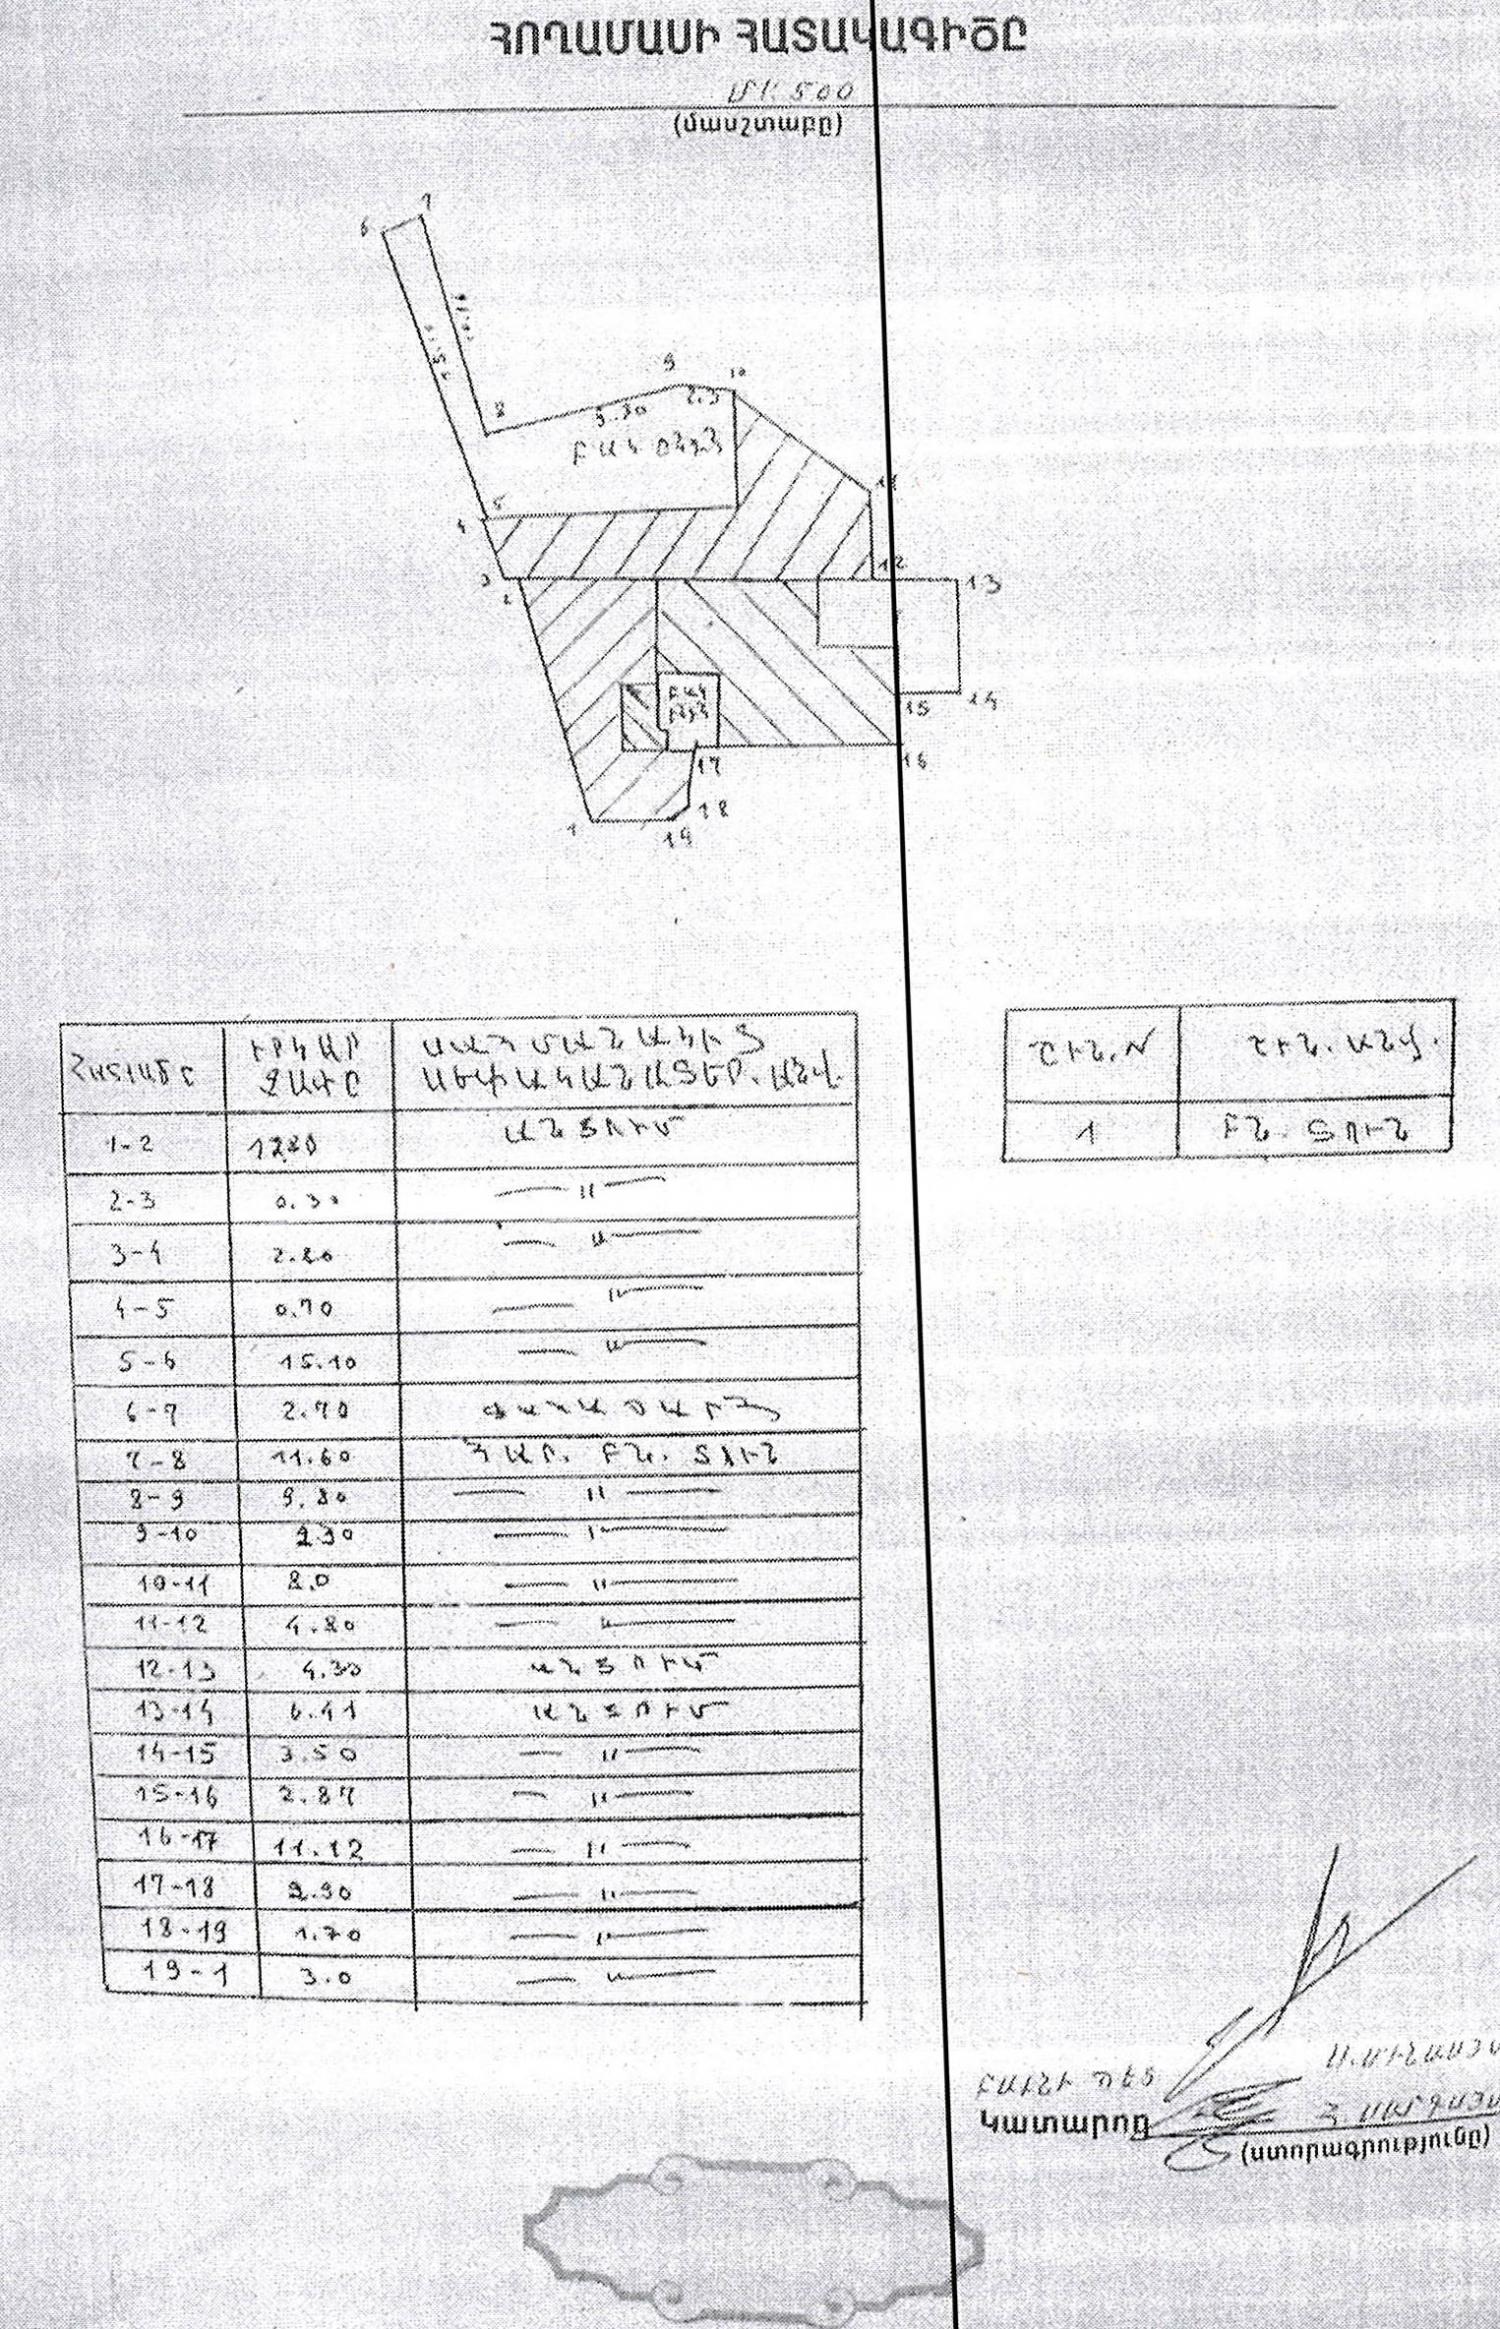 ՀՈՂԱՄԱՍԻ ՀԱՏԱԿԱԳԻԾԸ
Մ1:500
(մասշտաբը)
6
7
8
9
10
9.30
2.3
ԲԱԿ
5
4
3
2
11
12
13
14
15
16
17
18
19
1
ԲԱԿ
ՀԱՏՎԱԾԸ ԵՐԿԱՐ ՉԱՓԸ ՍԱՀՄԱՆԱԿԻՑ ՍԵՓԱԿԱՆԱՏԵՐ. ԱՆՎ.
1-2 12.80 ԱՆՑՈՒՄ
2-3 0.30 — " —
3-4 2.80 — " —
4-5 0.70 — " —
5-6 15.10 — " —
6-7 2.70
7-8 11.60 ՀԱՐ. ԲՆ. ՏՈՒՆ
8-9 9.30 — " —
9-10 2.30 — " —
10-11 8.0 — " —
11-12 4.80 — " —
12-13 4.30 ԱՆՑՈՒՄ
13-14 6.41 ԱՆՑՈՒՄ
14-15 3.50 — " —
15-16 2.87 — " —
16-17 11.12 — " —
17-18 2.90 — " —
18-19 1.70 — " —
19-1 3.0 — " —
ՇԻՆ.N ՇԻՆ. ԱՆՎ.
1 ԲՆ. ՏՈՒՆ
ԲԱԺՆԻ ՊԵՏ
Կատարող
(ստորագրությունը)